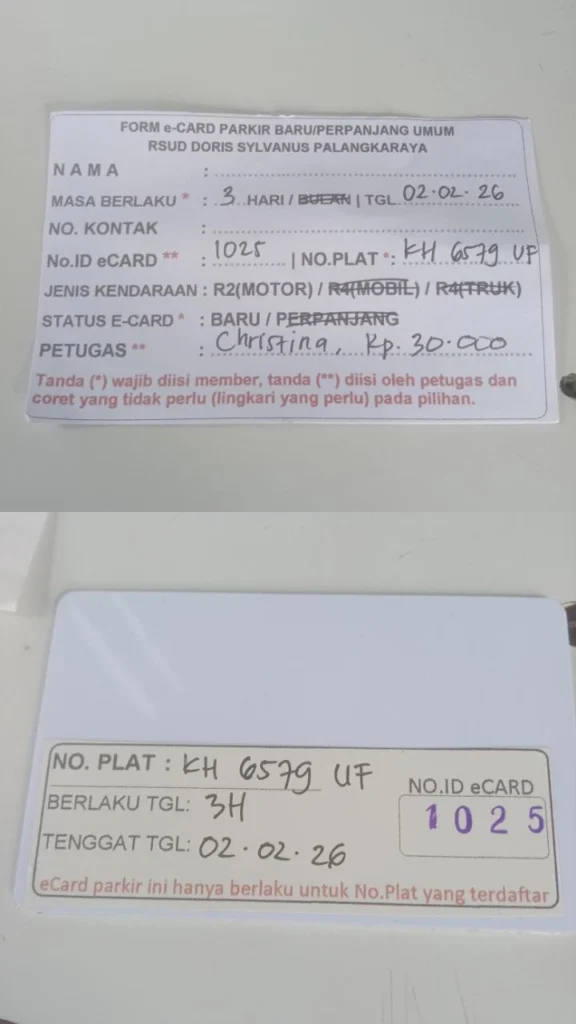 FORM e-CARD PARKIR BARU/PERPANJANG UMUM
RSUD DORIS SYLVANUS PALANGKARAYA
NAMA :
MASA BERLAKU * : 3 HARI / BULAN | TGL 02.02.26
NO. KONTAK :
No.ID eCARD ** : 1025 | NO.PLAT *: KH 6579 UF
JENIS KENDARAAN : R2(MOTOR) / R4(MOBIL) / R4(TRUK)
STATUS E-CARD * : BARU / PERPANJANG
PETUGAS ** : Christina, Rp. 30.000
Tanda (*) wajib diisi member, tanda (**) diisi oleh petugas dan
coret yang tidak perlu (lingkari yang perlu) pada pilihan.
NO. PLAT : KH 6579 UF
NO.ID eCARD
BERLAKU TGL: 3H
1025
TENGGAT TGL: 02.02.26
eCard parkir ini hanya berlaku untuk No.Plat yang terdaftar